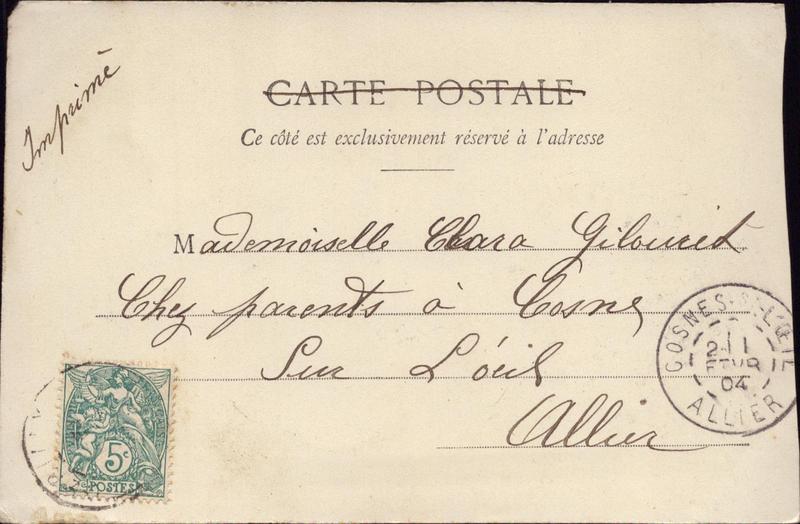 Imprimé
CARTE POSTALE
Ce côté est exclusivement réservé à l'adresse
Mademoiselle Clara Gilouret
Chez parents à Cosne
Sur L'œil
Allier
COSNES-S-L'ŒIL
FEVR
04
ALLIER
5c
POSTES